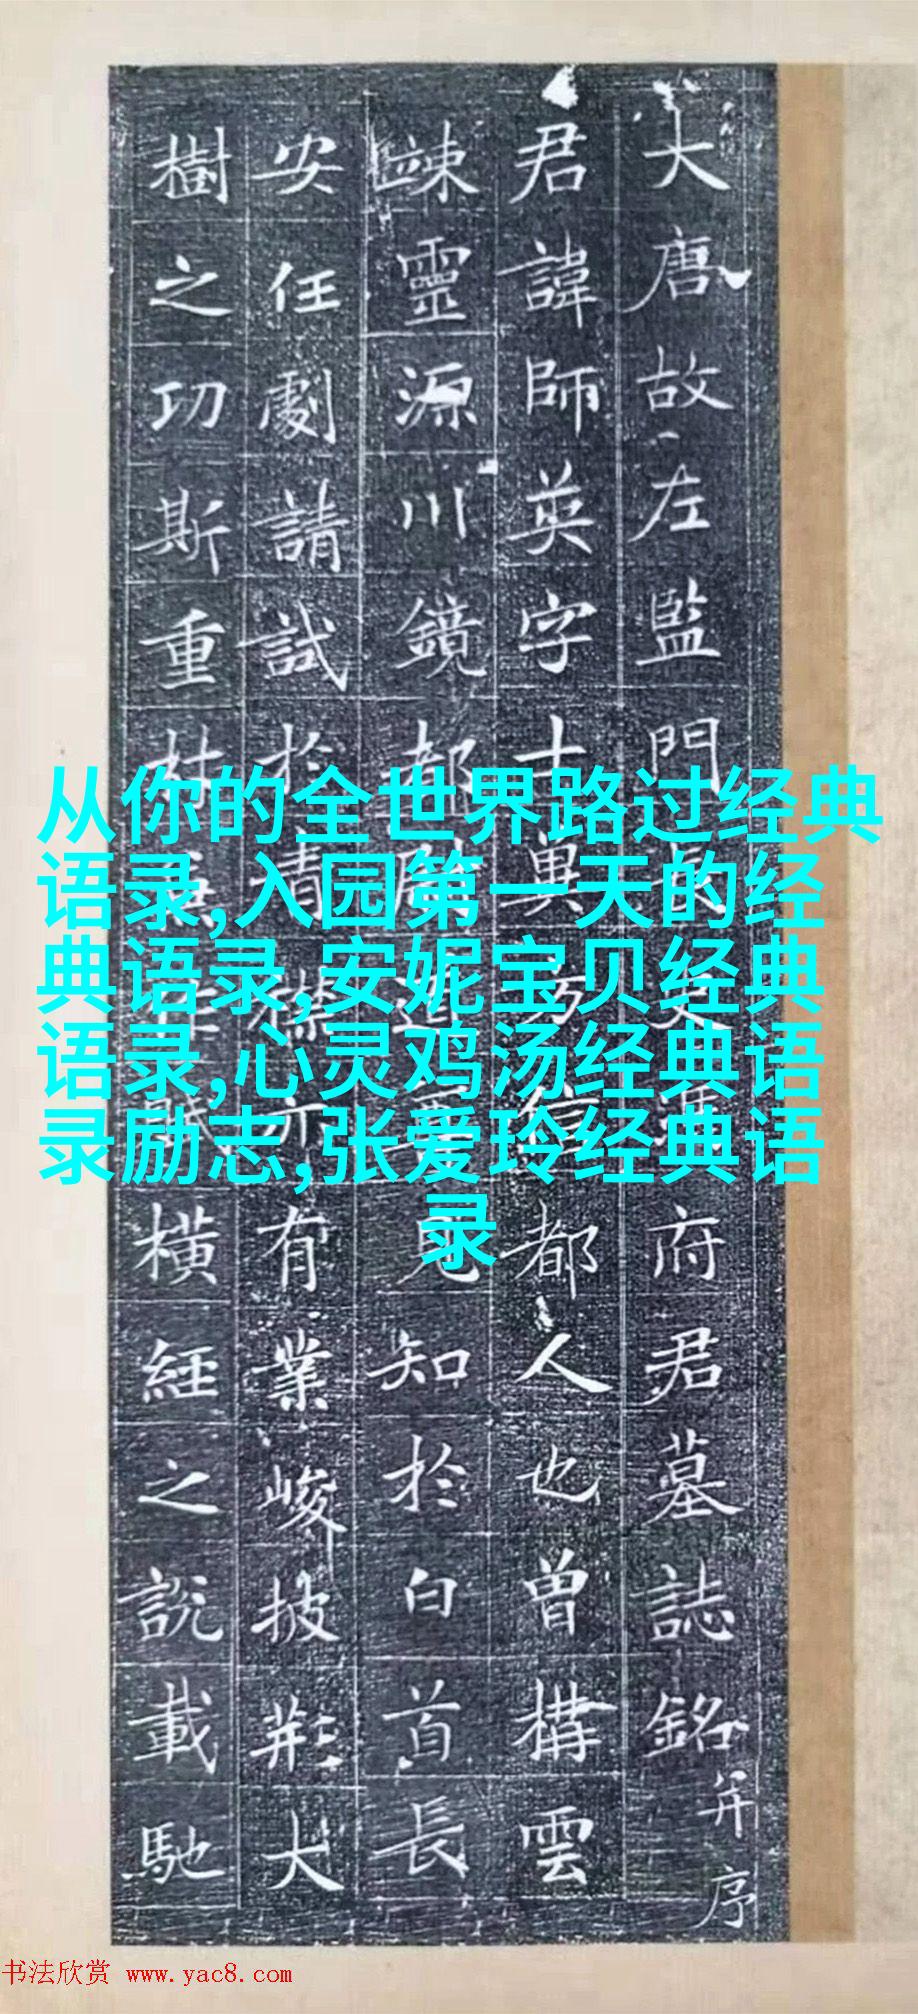 大唐故左監門府君墓誌銘并序
君諱師英字都人也曾構雲
竦靈源川鏡知於白首長
安任劇請試於有業峻披荊大
樹之功斯重橫經之說載馳
从你的全世界路过经典
语录,入园第一天的经
典语录,安妮宝贝经典
语录,心灵鸡汤经典语
录励志,张爱玲经典语
录
书法欣赏 www.yac8.com